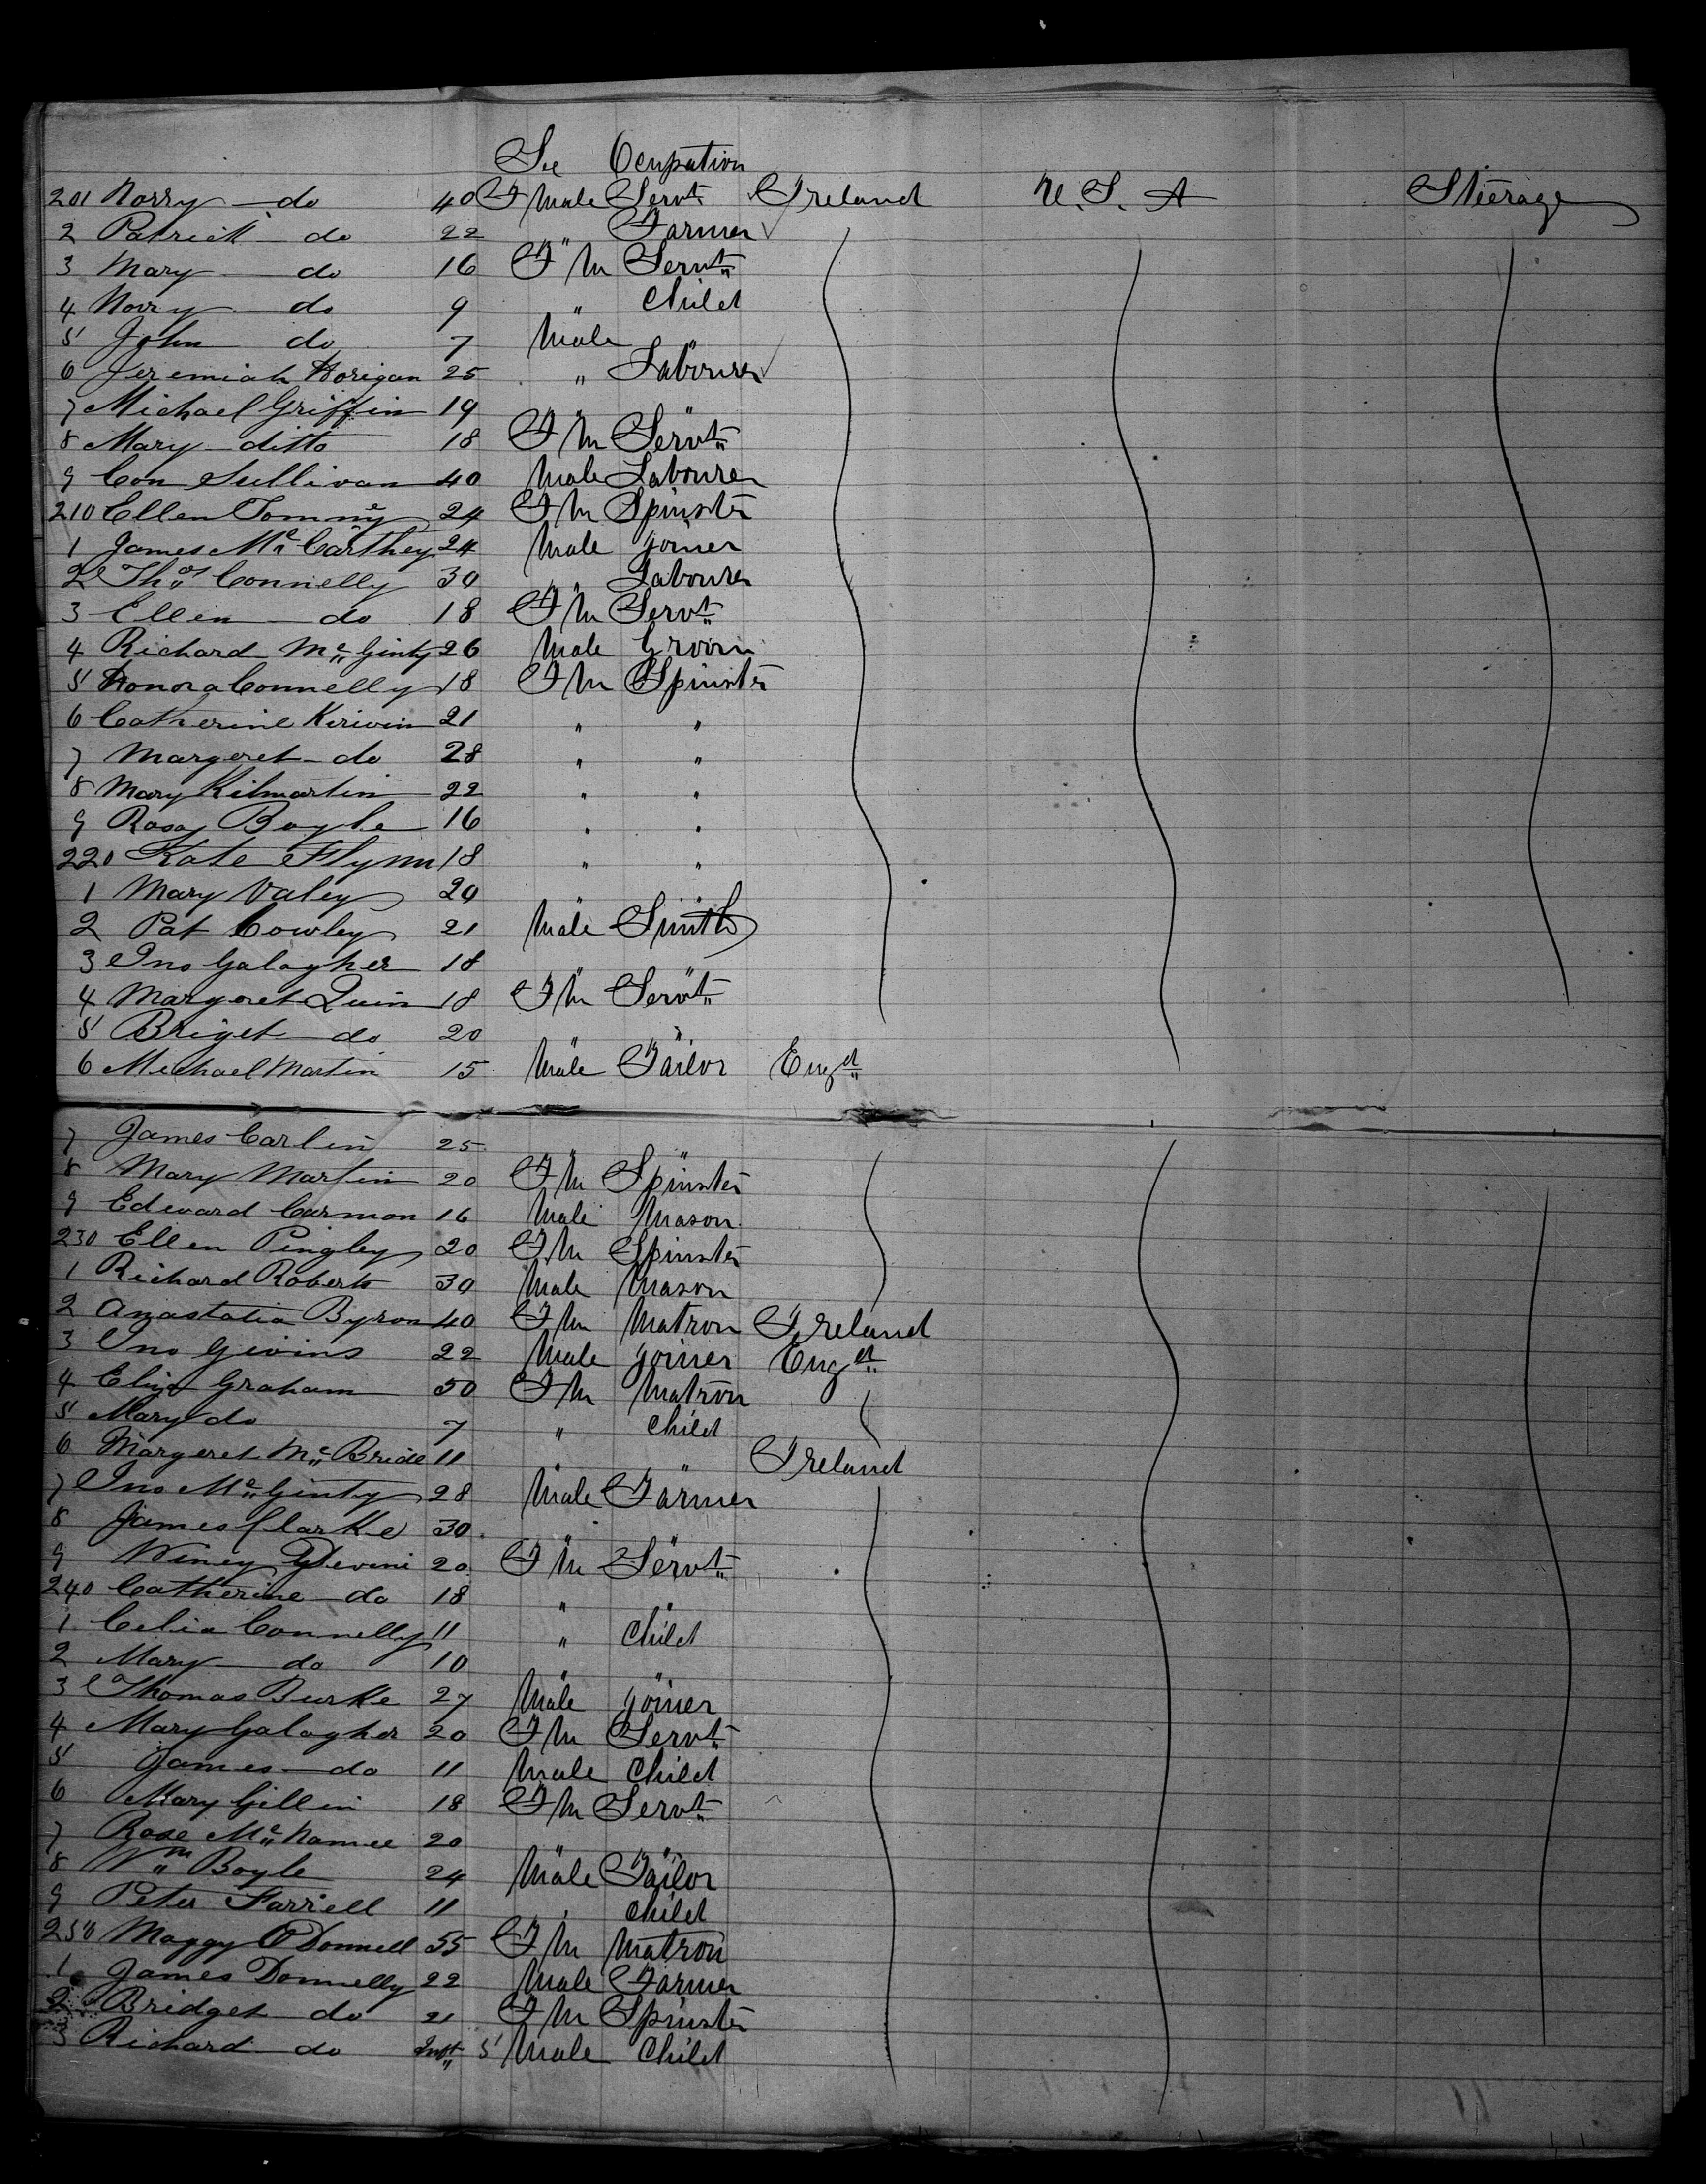 Sex Ocupation
201 Norry do 40 F Male Servt Ireland U. S. A Steerage
2 Patrick do 22 " Farmer
3 Mary do 16 F M Servt
4 Norry do 9 " Child
5 John do 7 Male "
6 Jeremiah Horigan 25 " Labourer
7 Michael Griffin 19 " "
8 Mary ditto 18 F M Servt
9 Con Sullivan 40 Male Labourer
210 Ellen Tommy 24 F M Spinster
1 James Mc Carthey 24 Male Joiner
2 Thos Connelly 30 " Labourer
3 Ellen do 18 F M Servt
4 Richard Mc Ginty 26 Male Groom
5 Honora Connelly 18 F M Spinster
6 Catherine Kirivin 21 " "
7 Margeret do 28 " "
8 Mary Kilmartin 22 " "
9 Rosy Boyle 16 " "
220 Kate Flynn 18 " "
1 Mary Valey 20 " "
2 Pat Cowley 21 Male Smith
3 Jno Galagher 18 " "
4 Margeret Quin 18 F M Servt
5 Briget do 20 " "
6 Michael Martin 15 Male Tailor Engd
7 James Carlin 25 " "
8 Mary Martin 20 F M Spinster
9 Edward Carmon 16 Male Mason
230 Ellen Pingley 20 F M Spinster
1 Richard Roberts 30 Male Mason
2 Anastatia Byron 40 F M Matron Ireland
3 Jno Givins 22 Male Joiner Engd
4 Eliza Graham 50 F M Matron
5 Mary do 7 " Child
6 Margeret Mc Bride 11 " " Ireland
7 Jno Mc Ginty 28 Male Farmer
8 James Clarke 30 " "
9 Winey Devini 20 F M Servt
240 Catherine do 18 " "
1 Celia Connelly 11 " Child
2 Mary do 10 " "
3 Thomas Burke 27 Male Joiner
4 Mary Galagher 20 F M Servt
5 James do 11 Male Child
6 Mary Gillin 18 F M Servt
7 Rose Mc Namee 20 " "
8 Wm Boyle 24 Male Tailor
9 Peter Farriell 11 " Child
250 Maggy O'Donnell 55 F M Matron
1 James Donnelly 22 Male Farmer
2 Bridget do 21 F M Spinster
3 Richard do Inft 5 Male Child